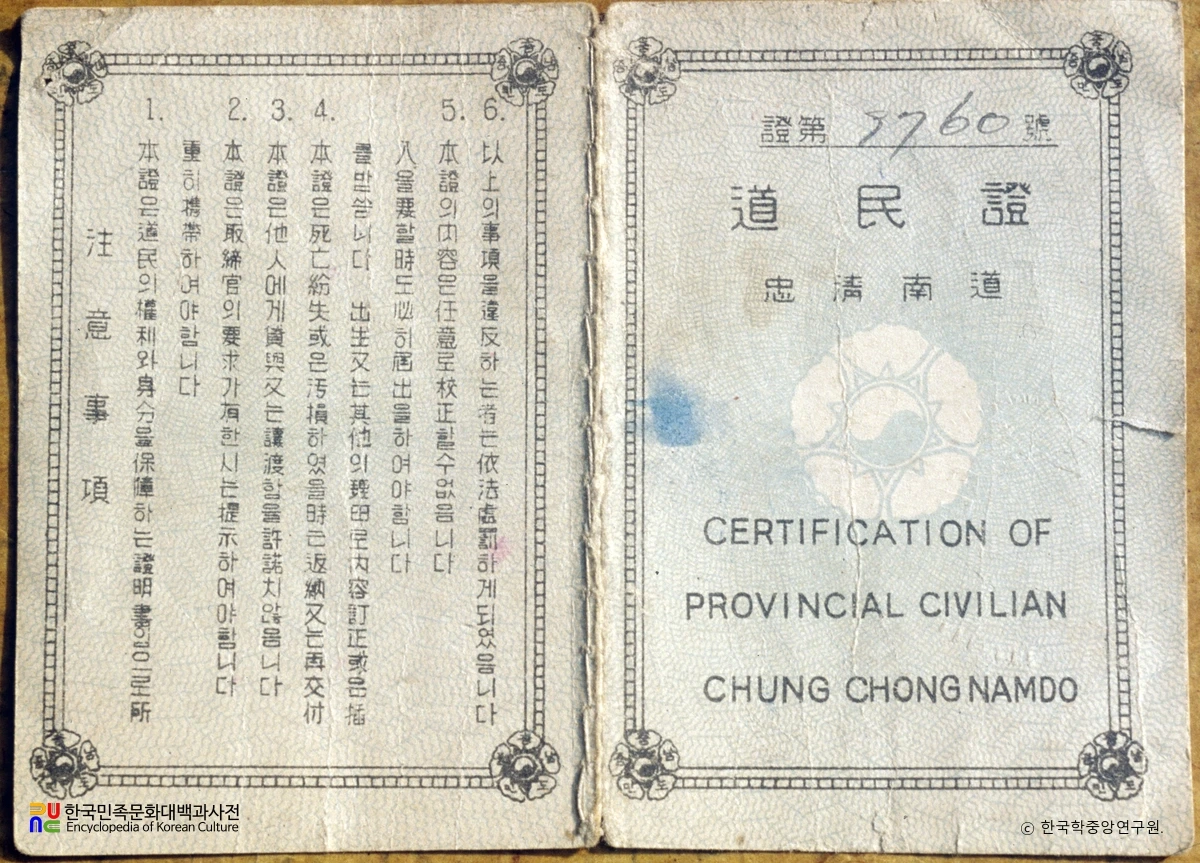 注意事項
1. 本證은道民의權利와身分을保障하는證明書임으로所
重히携帶하여야합니다
2. 本證은取締官의要求가有한시는提示하여야함니다
3. 本證은他人에게貸與又는讓渡함을許諾치않음니다
4. 本證은死亡紛失或은汚損하였을時는返納又는再交付
를받씀니다 出生又는其他의理由로內容訂正或은揷
入을要할時도必히届出을하여야함니다
5. 本證의內容은任意로校正할수없음니다
6. 以上의事項을違反하는者는依法處罰하게되었음니다
證第 號
道民證
忠淸南道
CERTIFICATION OF
PROVINCIAL CIVILIAN
CHUNG CHONGNAMDO
한국민족문화대백과사전
Encyclopedia of Korean Culture
© 한국학중앙연구원.